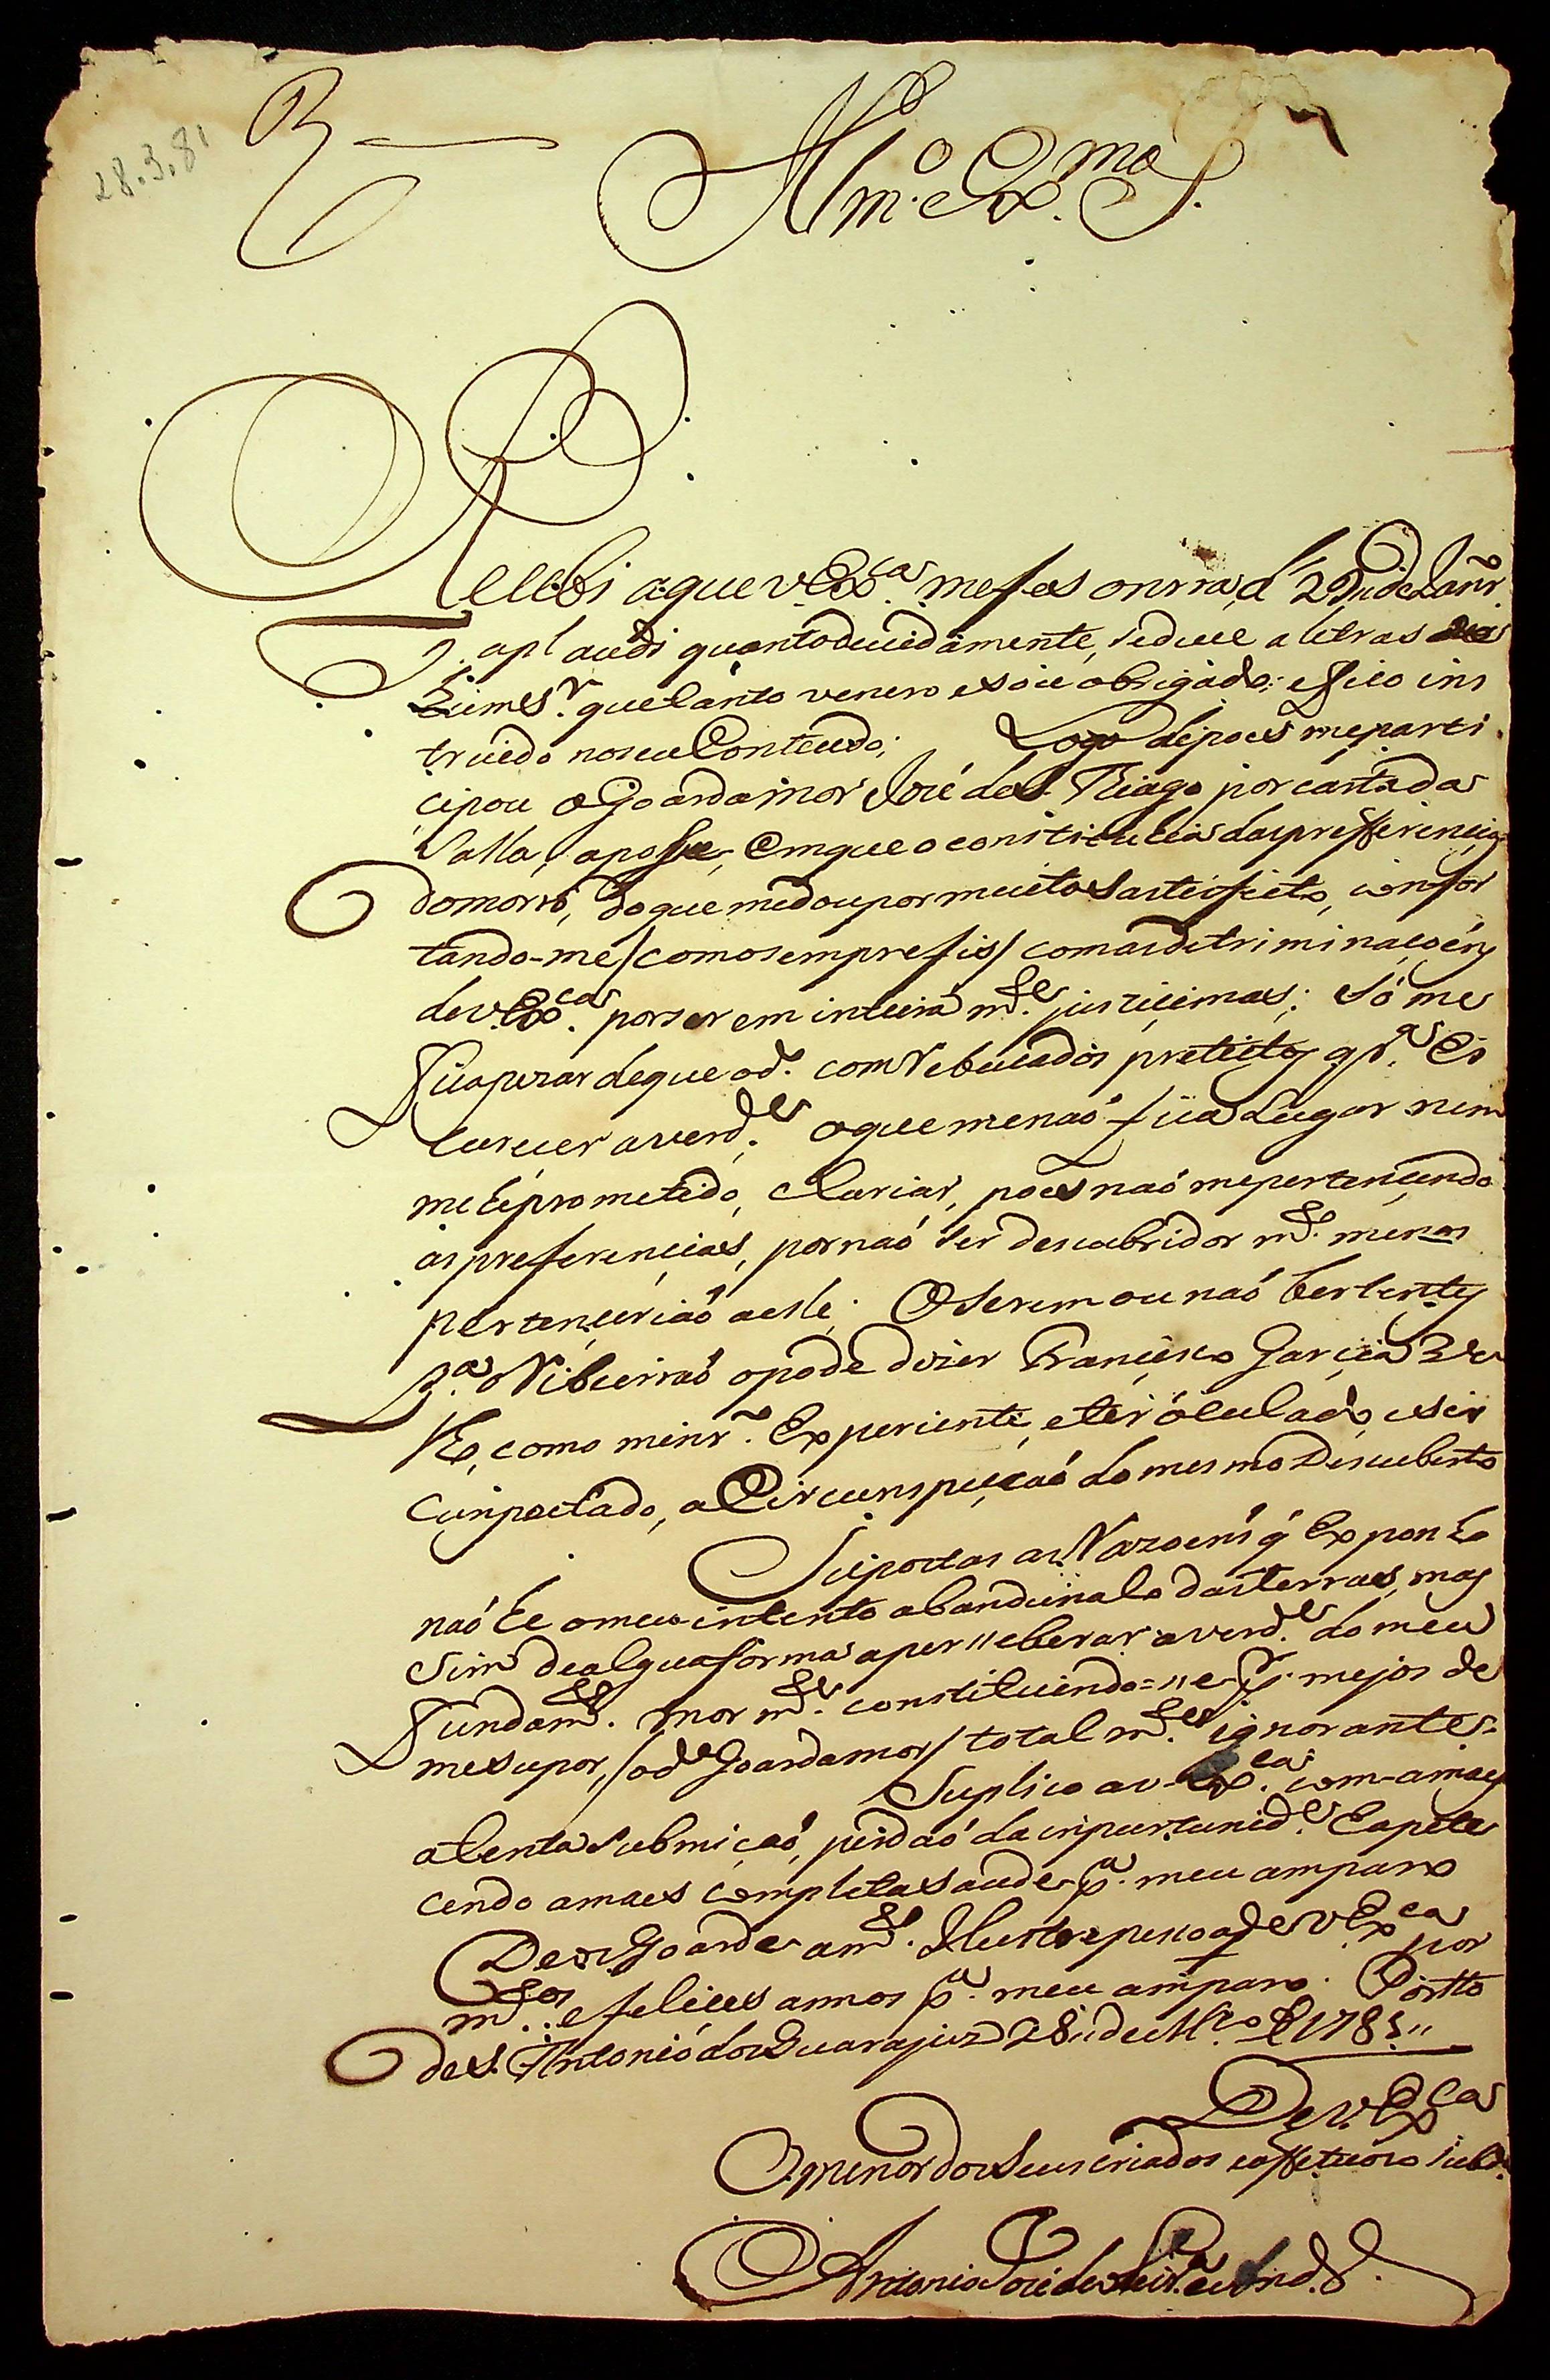 28.3.81
R
Illmo. e Exmo. S.
Recebi a que v Exca. me fes onrra, d' 29,, de Janro.
apl audi quanto devidamente, sedeve a letras
Lum Sr. que tanto venero e sou obrigado; e fico ins
truido no seu Contteudo; Logo depoes me parti
cipou o Goardamor José de S. Thiago por carta da
Salla, aposse, em que o constituhia das prefferencias
do morro, do que me dou por muito sastisfeito, confor
tando-me / como sempre fis / com as detriminacoens
de v. Exca. por serem inteira mte. justicimas; Só me
fica pezar de que o de. com Rebucados pretextos qra. Es
curecer a verde. o que me naó fica Lugar nem
me hé prometido, Clariar, poes naó me pertencendo
as preferencias, por naó ser descubridor mto. menos
pertenceriaó a elle; O Serem ou naó vertentes
pa. o Ribeiraó o pode dizer Francisco Garcia Ve
lho, como minro. Experiente, e ter óculado, e sir
cunspectado, a Circunspeccaó do mesmo Descuberto
Supostas as Razoens q' Exponho
naó he o meu intento abanduna lo das terras, mas
sim de algua forma aper,,ceberar a verde. do meu
Fundamto. mor mte. constituindo=,,e pr. mejos de
me supor, / o de Goardamor / total mte. ignorante=
Suplico a v Exca. com a maes
atenta submicaó, perdaó da inpurtunide. E apete
cendo a maes Completa saude pa. meu amparo
Deos Goarde a mto. Ilustre pessoa de v Exca por
mtos.. e felices annos pa. meu amparo. Portto
de S. Antonio dos Guarajuz 28,, de Mco. de 1781,,
De v. Exca
O menor dos Seus criados e affetuozo Subdo.
Antonio José de